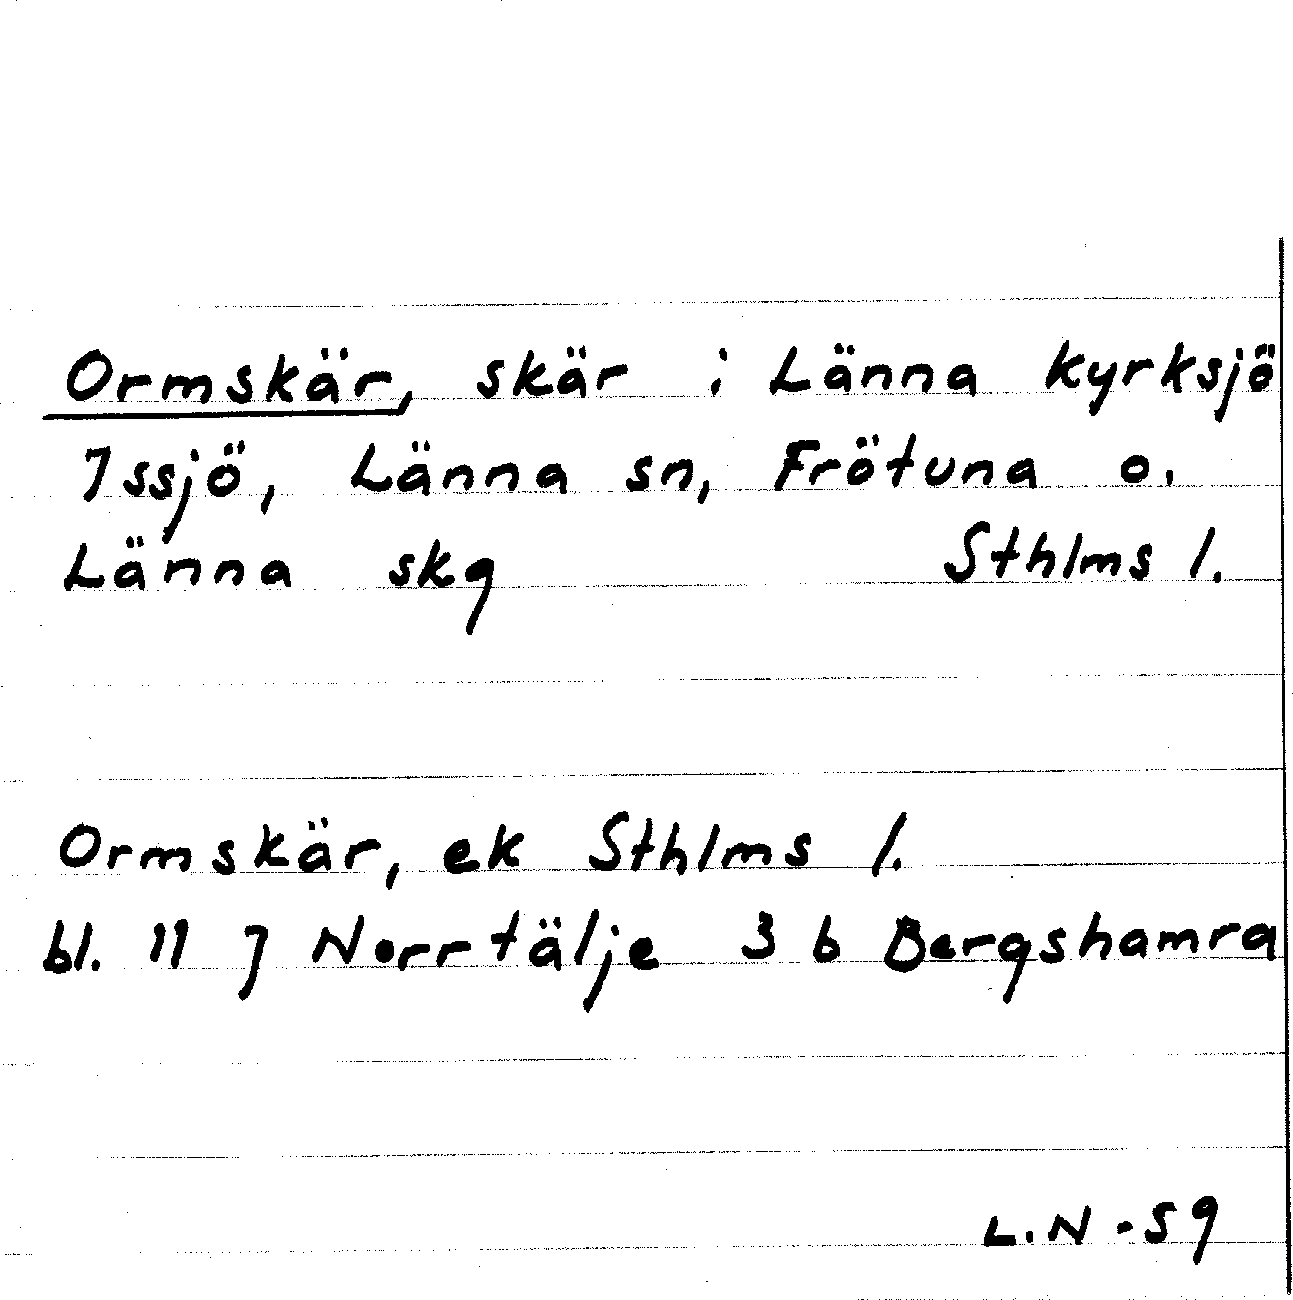 Ormskär, skär i Länna kyrksjö
Issjö, Länna sn, Frötuna o.
Länna skg Sthlms l.
Ormskär, ek Sthlms l.
bl. 11 J Norrtälje 3 b Bergshamra
L.N -59